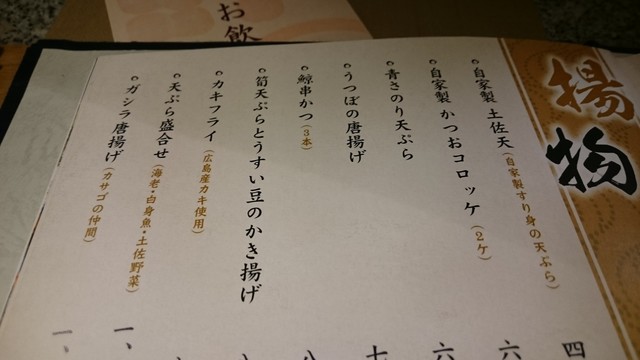 お飲
揚物
自家製 土佐天 (自家製すり身の天ぷら)
自家製 かつおコロッケ (2ケ)
青さのり天ぷら
うつぼの唐揚げ
鯨串かつ (3本)
筍天ぷらとうすい豆のかき揚げ
カキフライ (広島産カキ使用)
天ぷら盛合せ (海老・白身魚・土佐野菜)
ガシラ唐揚げ (カサゴの仲間)
四
六
六
十
八
一、
一、